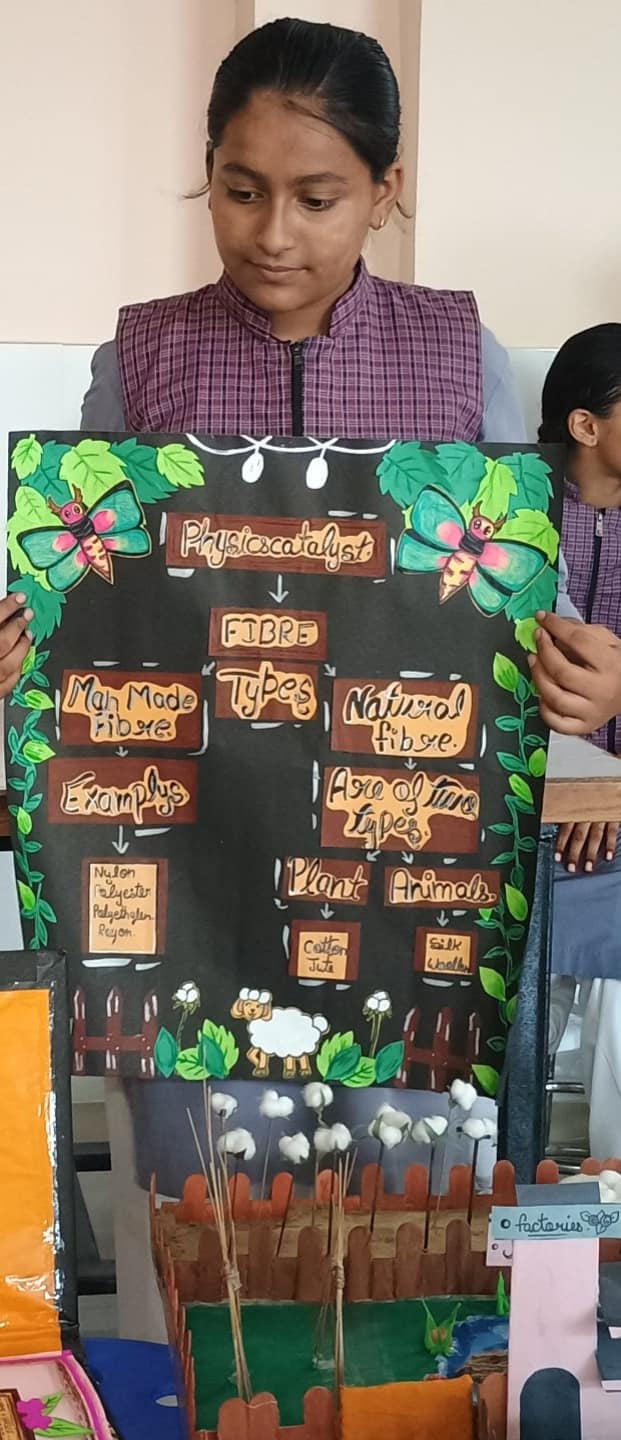 Physicscatalyst.
FIBRE
Types
Man Made
Fibre.
Natural
fibre.
Examplys
Are of two
types.
Nylon
Polyester
Polyethylen
Reyon.
Plant
Animals.
Cotton
Jute
Silk
Woollen
factories.